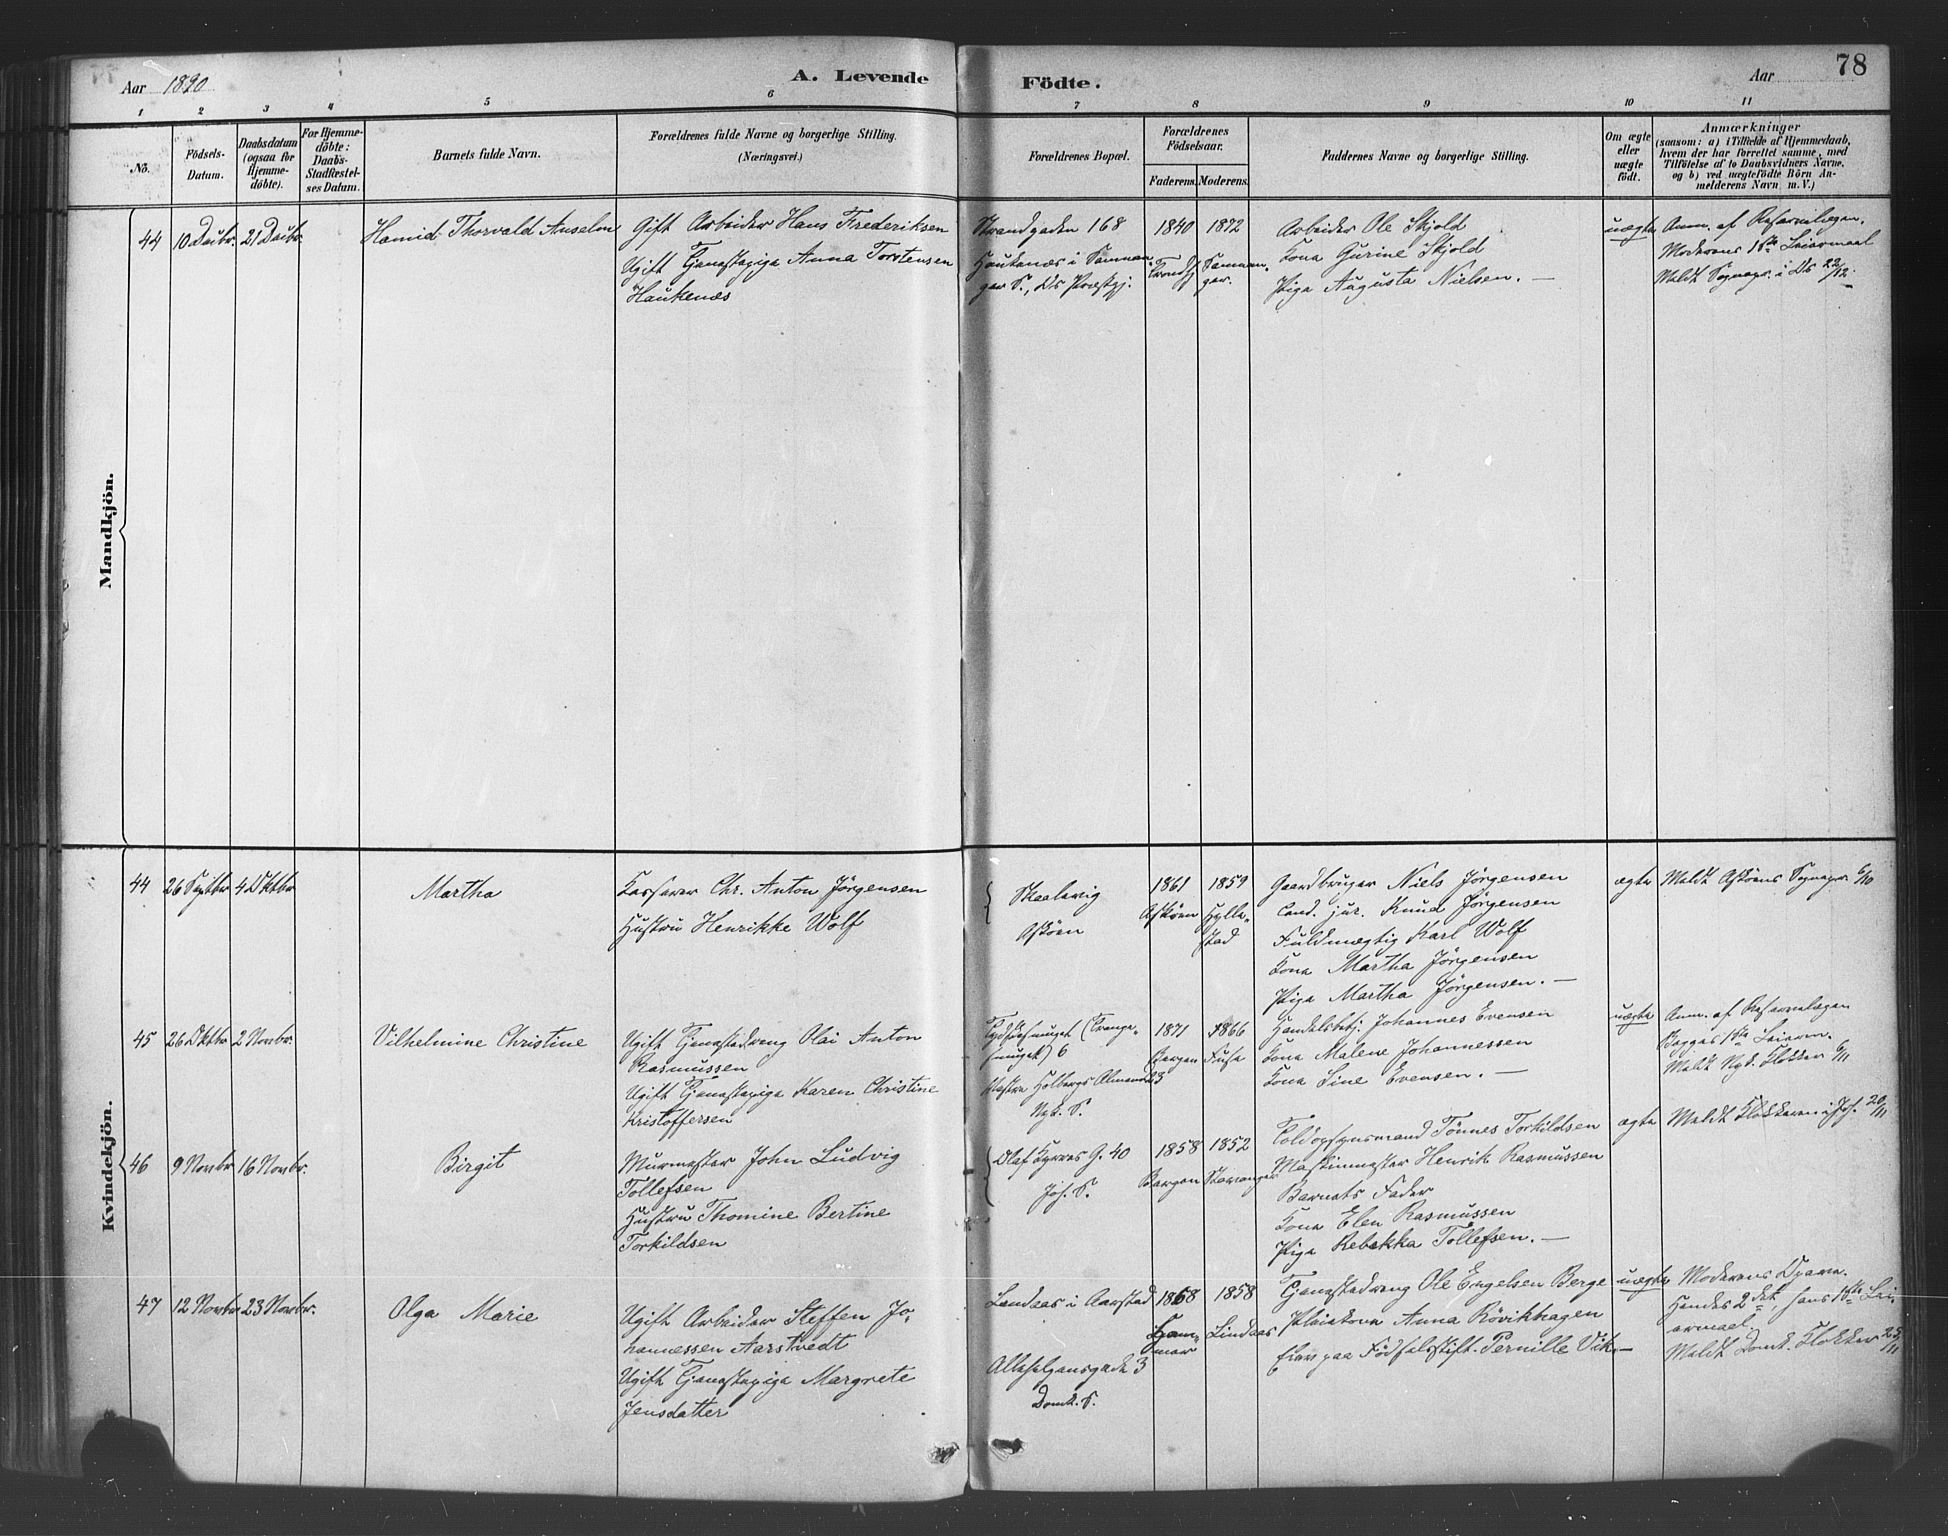 Aar 1890
A. Levende
Födte.
Aar
78
1 2 3 4 5 6 7 8 9 10 11
No.
Födsels-
Datum.
Daabsdatum
(ogsaa for
Hjemme-
döbte).
For Hjemme-
döbte:
Daabs-
Stadfæstel-
ses Datum.
Barnets fulde Navn.
Forældrenes fulde Navne og borgerlige Stilling.
(Næringsvei.)
Forældrenes Bopæl.
Forældrenes
Födselsaar.
Faderens.
Moderens.
Faddernes Navne og borgerlige Stilling.
Om ægte
eller
uægte
födt.
Anmærkninger
(saasom: a) i Tilfælde af Hjemmedaab,
hvem der har forrettet samme, med
Tilföielse af to Daabsvidners Navne,
og b) ved uægtefödte Börn An-
melderens Navn m. V.)
Mandkjön.
44
10 Decbr.
21 Decbr.
Thorvald Anselm
Gift Arbeider Hans Frederiksen
Ugift Tjenestepige Anna Torstensen
Haukenæs
Strandgaden 168
Haukenæs i Samnan-
ger S., Os Præstgj.
1840
Trondhj
1872
Samnan-
ger.
Arbeider Ole Skjold
Kona Gurine Skjold
Pige Augusta Nielsen. —
uægte
Anm. af Reservelægen.
Moderens 1ste Leiermaal
Meldt Sognepr. i Os 22/12.
Kvindekjön.
44
26 Septbr
4 Oktbr
Martha
Chr. Anton Jörgensen
Hustru Henrikke Wolf
Skaalevig
Asköen
1861
Asköen
1859
Hylle-
stad
Gaardbruger Niels Jörgensen
Cand. jur. Knud Jörgensen
Fuldmægtig Karl Wolf
Kona Martha Jörgensen
Pige Martha Jörgensen. —
ægte
Meldt Asköens Sognepr. 6/10
45
26 Oktbr
2 Novbr.
Vilhelmine Christine
Ugift Tjenestedreng Olai Anton
Rasmussen
Ugift Tjenestepige Karen Christine
Kristoffersen
smuget) 6
Holbergs Almend 23
Nyk. S.
1871
Bergen
1866
Fuse
Handelsbtj. Johannes Evensen
Kona Malene Johannessen
Kona Sine Evensen. —
uægte
Anm. af Reservelægen
Begges 1ste Leierm.
Meldt Nyk. Klokker 6/11
46
9 Novbr
16 Novbr.
Birgit
Murmester John Ludvig
Tollefsen
Hustru Thomine Bertine
Torkildsen
Olaf Kyrres G. 40
Joh. S.
1858
Bergen
1852
Stavanger
Toldopsynsmand Tönnes Torkildsen
Maskinmester Henrik Rasmussen
Barnets Fader
Kona Elen Rasmussen
Pige Rebekka Tollefsen. —
ægte
Meldt Klokkeren i Joh. 20/11
47
12 Novbr
23 Novbr.
Olga Marie
Ugift Arbeider Steffen Jo-
hannessen Aarstvedt
Ugift Tjenestepige Margrete
Jensdatter
Landaas i Aarstad
Allehelgensgade 3
Domk. S.
1868
Ham-
mer
1858
Lindaas
Tjenestedreng Ole Engelsen Berge
Pleiekona Anna Rövikhagen
Elev paa Födselsstift. Pernille Vik. —
uægte
Moderens Opgave.
Hendes 2det, hans 1ste Lei-
ermaal.
Meldt Domk. Klokker 25/11